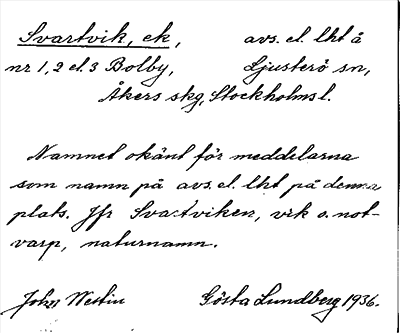 Svartvik, ek, avs. el. lht å
nr 1, 2 el. 3 Bolby, Ljusterö sn,
Åkers skg, Stockholms l.
Namnet okänt för meddelarna
som namn på avs. el. lht på denna
plats. Jfr Svartviken, vrk o. not-
varp, naturnamn.
John Westin Gösta Lundberg 1936.